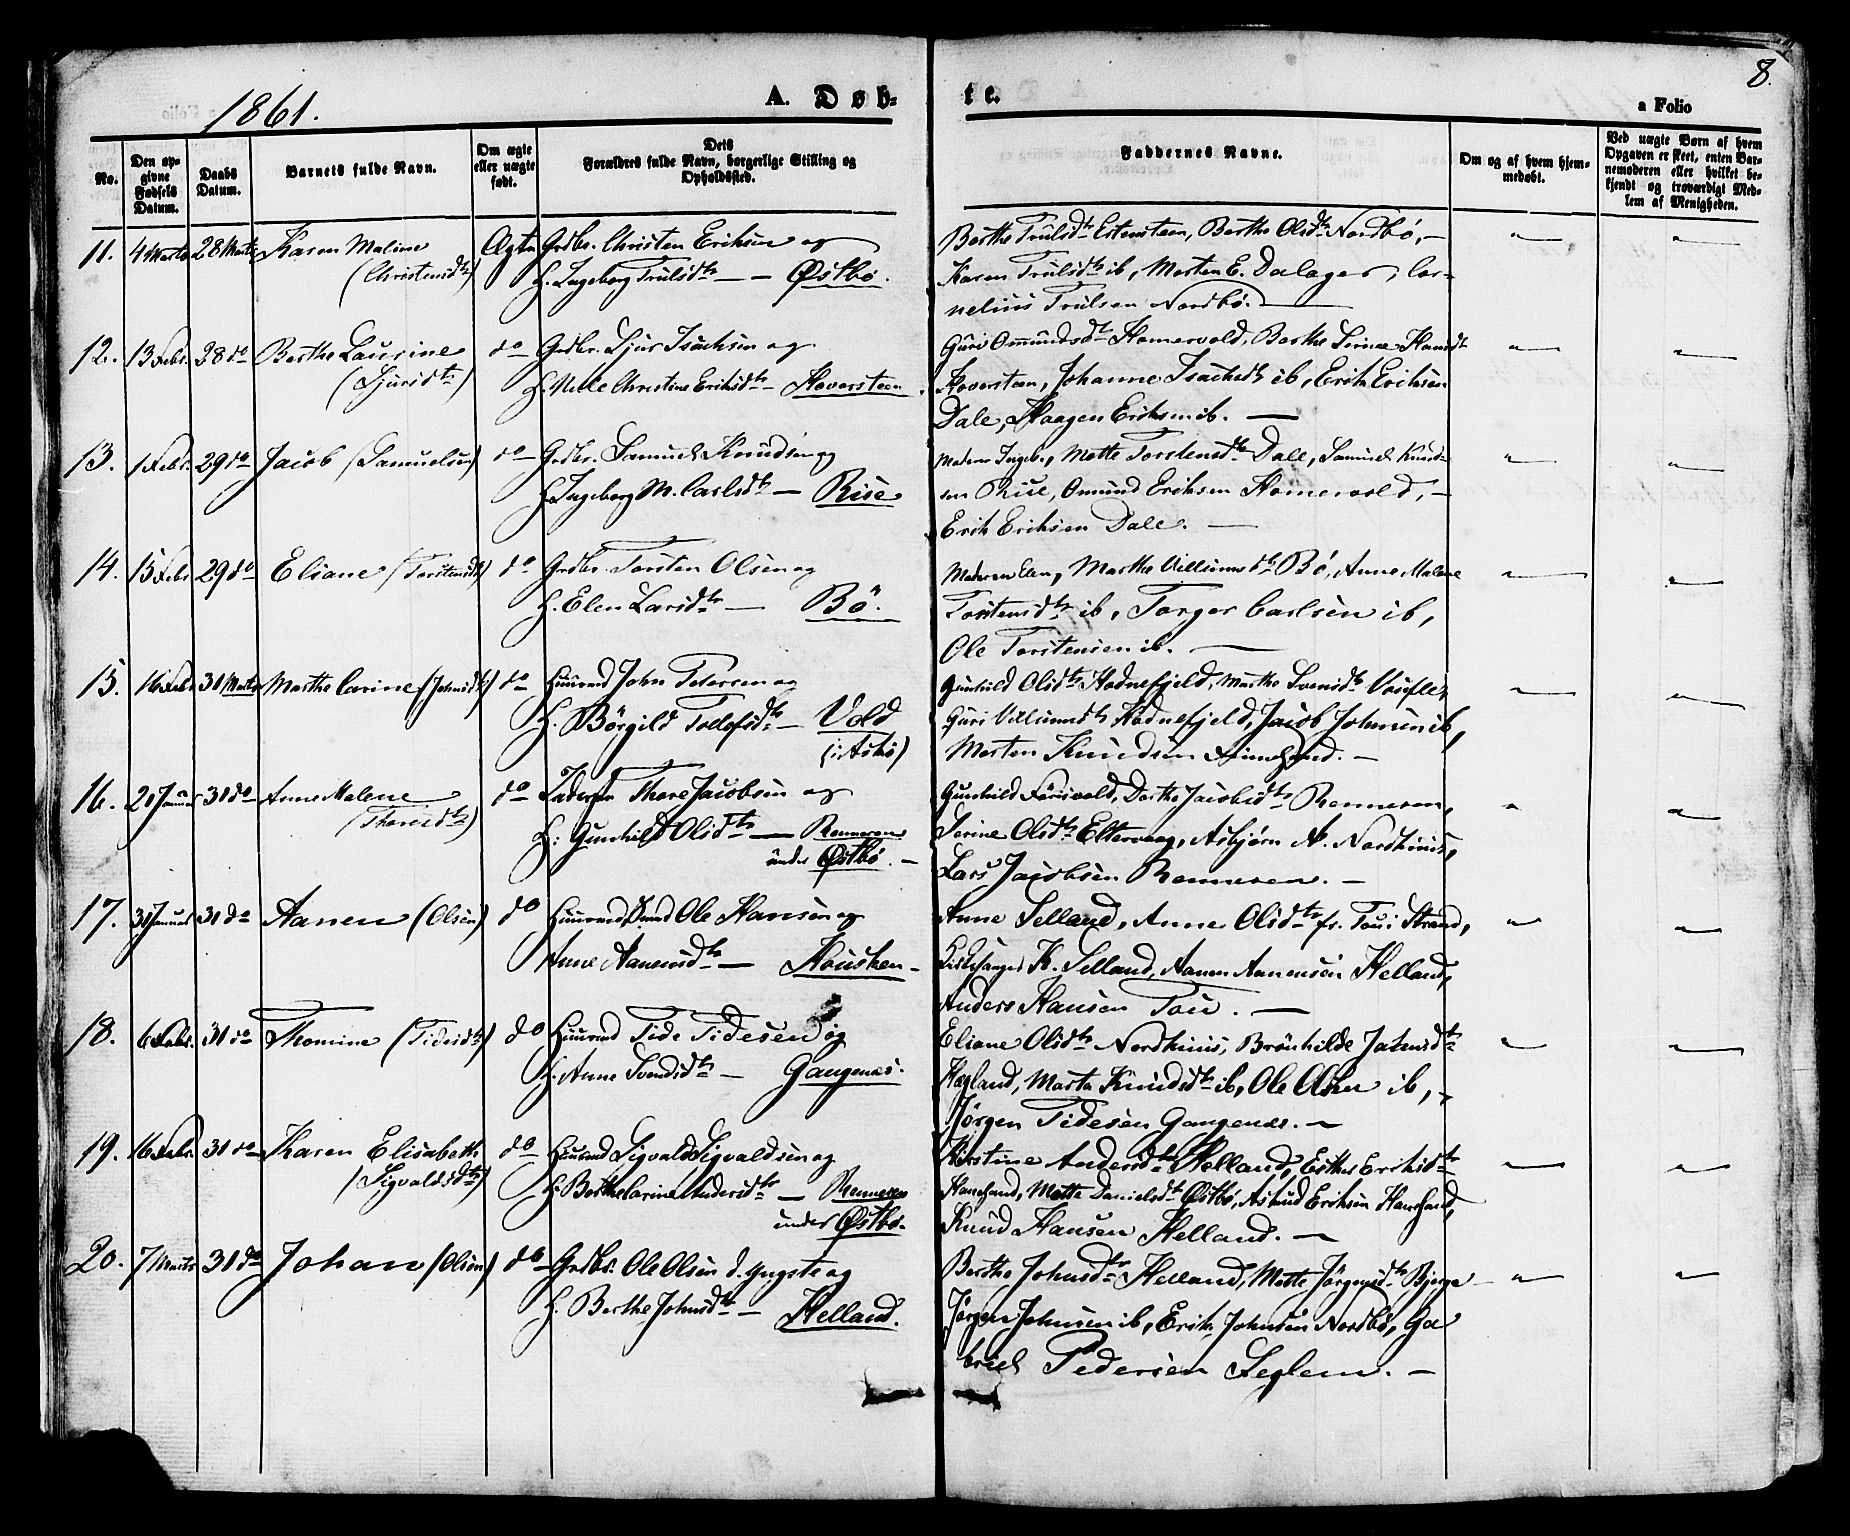 1861.
A. Døb-
te.
a Folio
8.
No.
Den op-
givne
Fødsels
Datum.
Daabs
Datum.
Barnets fulde Navn.
Om ægte
eller uægte
født.
Dets
Forældres fulde Navn, borgerlige Stilling og
Opholdssted.
Faddernes Navne.
Om og af hvem hjem-
medøbt.
Ved uægte Børn af hvem
Opgaven er skeet, enten Bar-
nemoderen eller hvilket be-
kjendt og troværdigt Med-
lem af Menigheden.
11. 4 Marts 28 Marts Karen Maline Ægte Grdbr. Christen Eriksen og
(Christensdtr) H. Ingeborg Trulsdtr — Østbø.
Berthe Trulsdtr Estensteen, Berthe Olsdtr Nordbø, —
Karen Trulsdtr ib, Morten E. Dalager, Cor-
nelius Trulsen Nordbø.
12. 13 Febr. 28 do Berthe Laurine do Grdbr. Sjur Isachsen og
(Sjursdtr) H. Nille Christine Eriksdtr — Hoversteen.
Guri Omundsdtr Homervold, Berthe Serine Hansdt
Hoversteen, Johanne Isachsdtr ib, Erik Eriksen
Dale, Haagen Eriksen ib. —
13. 1 Febr. 29 do Jacob (Samuelsen) do Grdbr. Samuel Knudsen og
H. Ingeborg M. Carlsdtr — Rise
Moderen Ingeb., Mette Torstensdtr Dale, Samuel Knud-
sen Rise, Omund Eriksen Homervold, —
Erik Eriksen Dale. —
14. 15 Febr 29 do Eliane (Torstensdtr) do Grdbr. Torsten Olsen og
H. Elen Larsdtr — Bö.
Moderen Elen, Marthe Villumsdtr Bö, Anne Malene
Torstensdtr ib, Torger Carlsen ib,
Ole Torstensen ib. —
15. 16 Febr 31 Marts Marthe Carine (Johnsdtr) do Huusmd John Petersen og
H. Börgild Tollefsdtr — Vold
(i Askø)
Gunhild Olsdtr Hodnefjeld, Marthe Svensdtr
Guri Villumsdtr Hodnefjeld, Jacob Johnsen ib,
Morten Knudsen
16. 21 Januar 31 do Anne Malene do Thore Jacobsen og
(Thoresdtr) H: Gunhild Olsdtr — Renneren
under Østbø. —
Gunhild Dorthe Jacobsdtr Renneren,
Serine Olsdtr Eltervaag, Asbjørn A. Nordhuus,
Lars Jacobsen Renneren. —
17. 31 Januar 31 do Aanen (Olsen) do Huusmd Ole Hansen og
Anne Aanensdtr — Housken —
Anne Selland, Anne Olsdtr fr. Tou i Strand,
Kirkesanger K. Selland, Aanen Aanensen Helland,
Anders Hansen Tou. —
18. 6 Febr. 31 do Thomine (Tidesdtr) do Huusmd Tide Tidesen og
H. Anne Svendsdtr — Gangenæs.
Eliane Olsdtr Nordhuus, Brönhilde Johnsdtr
Hegland, Marta Knudsdtr ib, Ole Olsen ib, —
Jørgen Tidesen Gangenæs. —
19. 16 Febr. 31 do Karen Elisabeth do Huusmd Sigvald Sigvaldsen og
(Sigvaldsdtr) H. Berthe Carine Andersdtr — Renneren
under Østbø.
Kirstine Andersdtr Helland, Esther Eriksdtr
Hanesand, Mette Danielsdtr Østbø, Asbiud Eriksen Hanesand,
Knud Hansen Helland. —
20. 7 Marts 31 do Johan (Olsen) do Grdbr. Ole Olsen d. yngste og
H. Berthe Johnsdtr — Helland.
Berthe Johnsdtr Helland, Mette Jørgensdtr Bjerge
Jørgen Johnsen ib, Erik Johnsen Nordbø, Ga
briel Pedersen Seglem. —